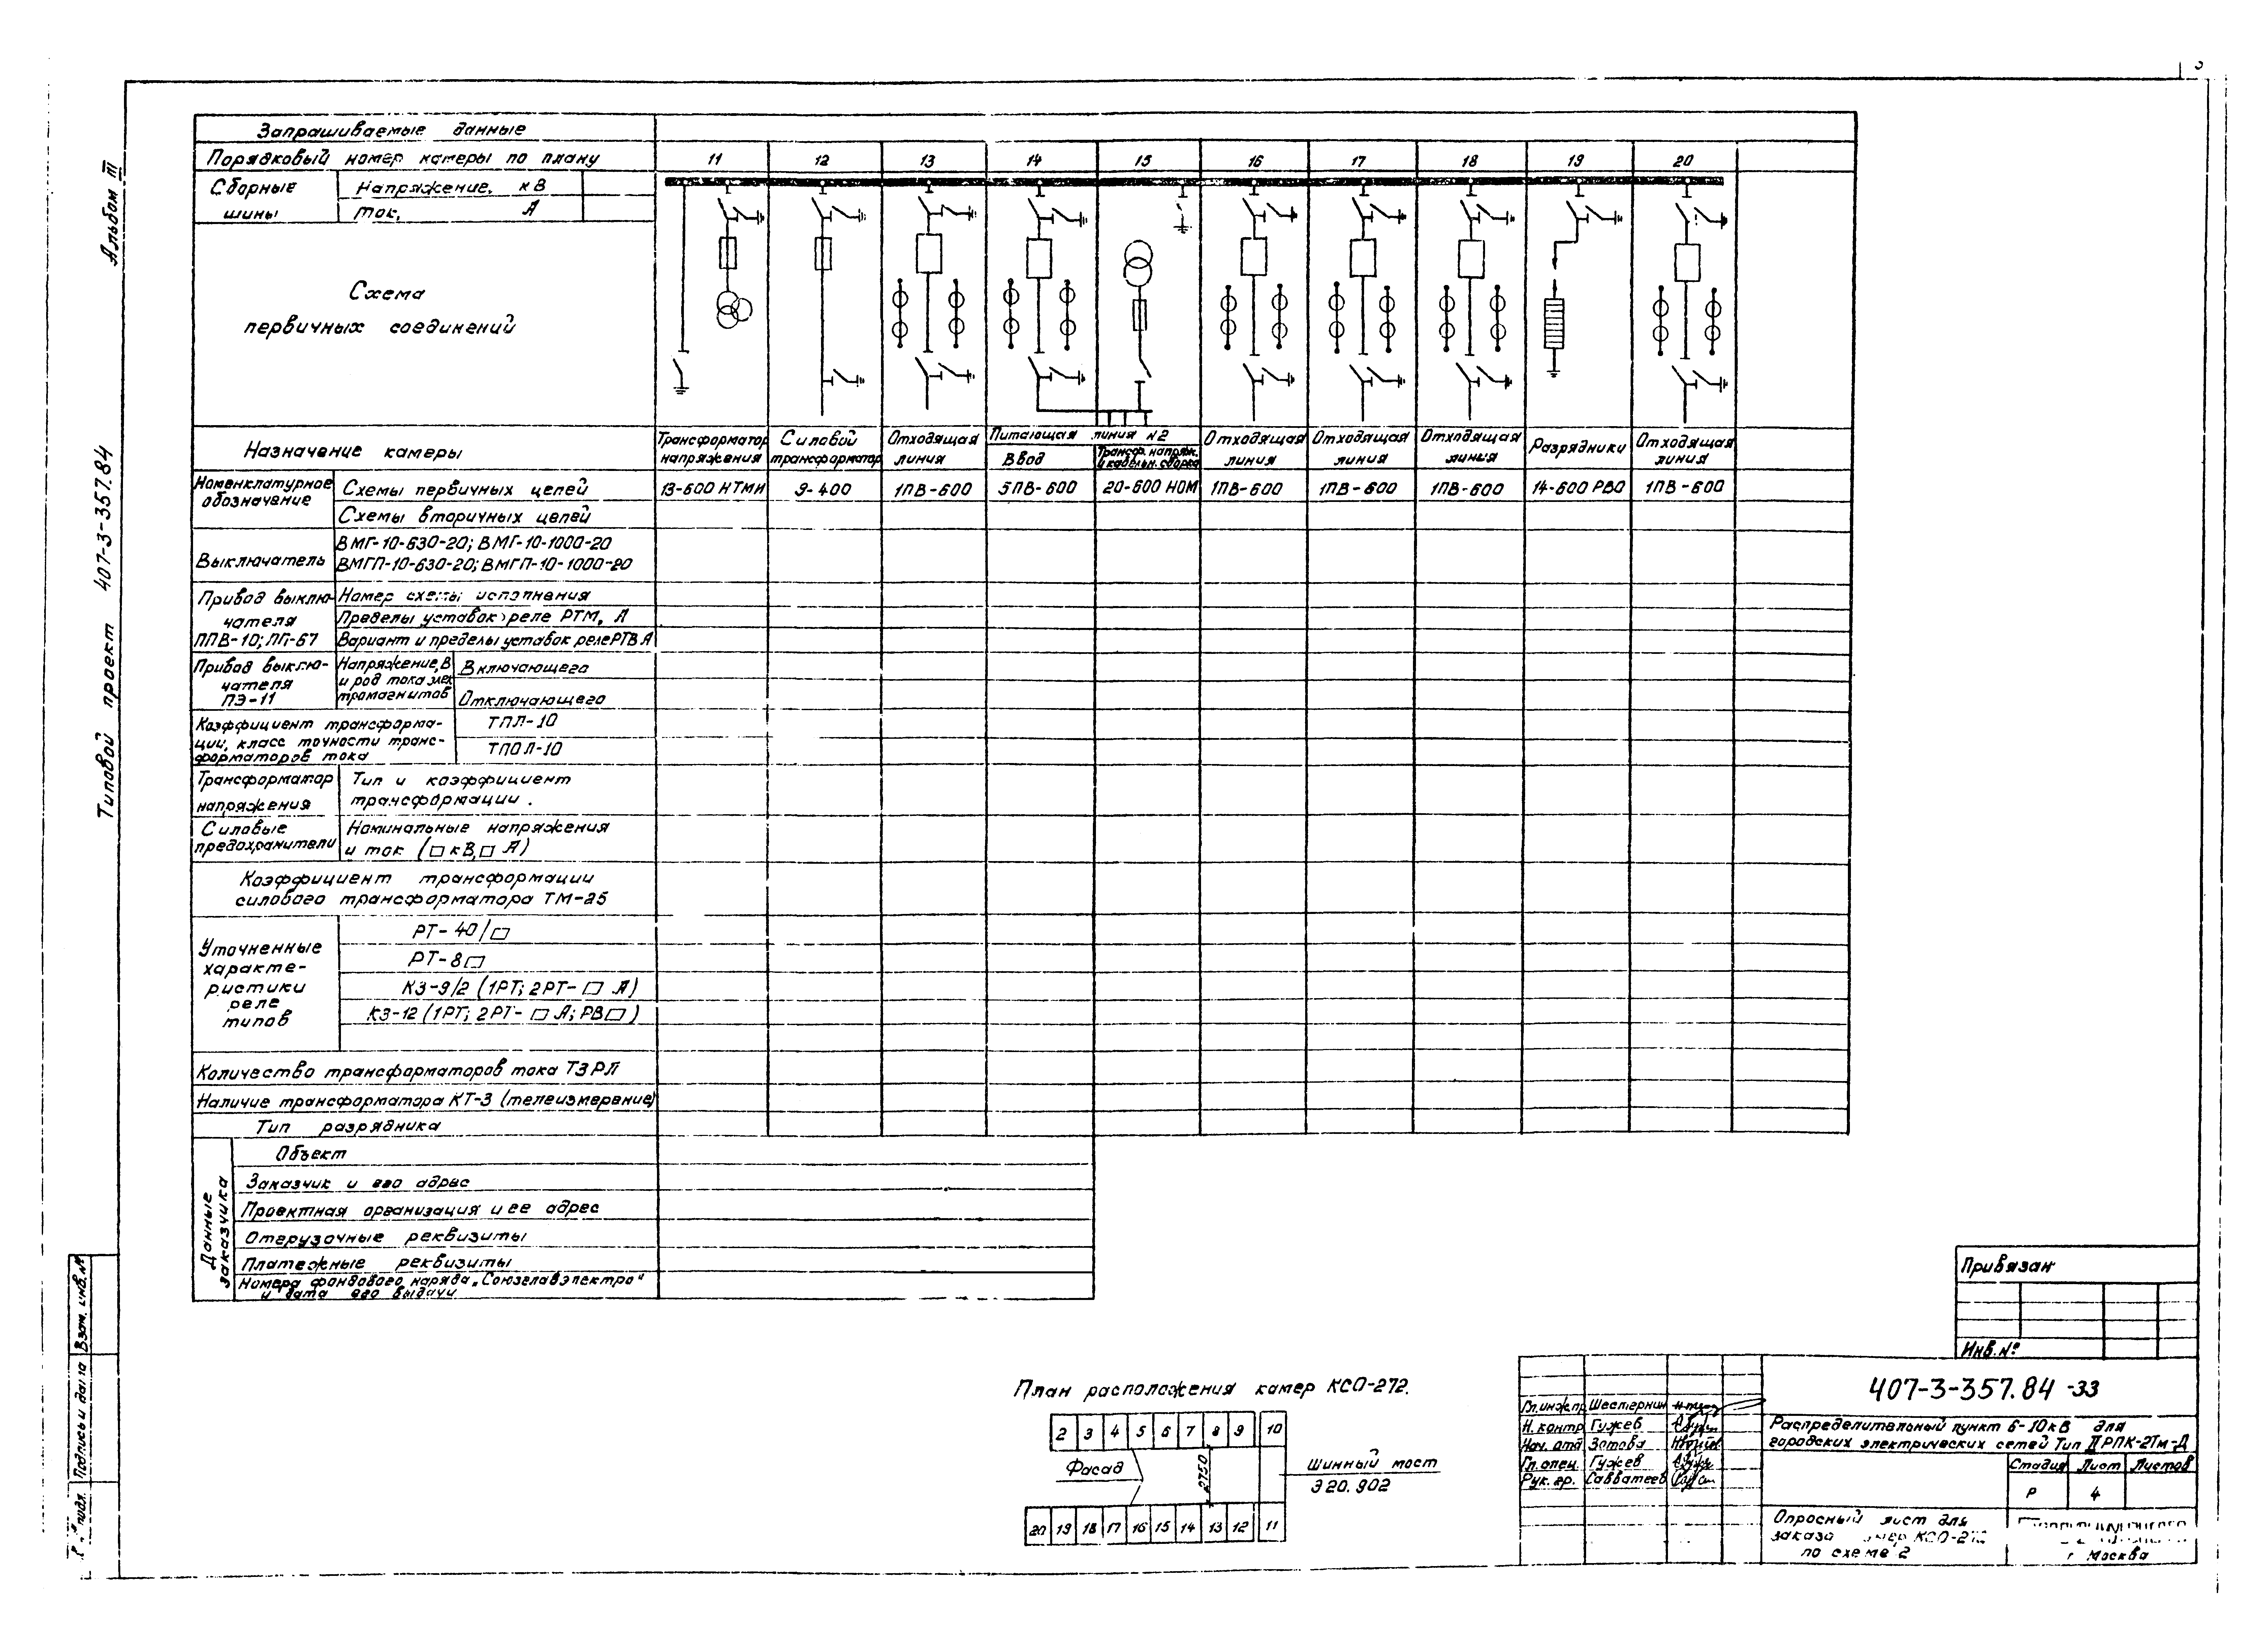 3
Альбом III
Типовой проект 407-3-357.84
Запрашиваемые данные
Порядковый номер камеры по плану 11 12 13 14 15 16 17 18 19 20
Сборные шины
Напряжение, кВ
Ток, А
Схема
первичных соединений
Назначение камеры
Трансформатор напряжения
Силовой трансформатор
Отходящая линия
Питающая линия №2
Ввод
Трансф. напряж. и кабельн. сборка
Отходящая линия
Отходящая линия
Отходящая линия
Разрядники
Отходящая линия
Номенклатурное обозначение
Схемы первичных цепей 13-600 НТМИ 9-400 1ПВ-600 5ПВ-600 20-600 НОМ 1ПВ-600 1ПВ-600 1ПВ-600 14-600 РВО 1ПВ-600
Схемы вторичных цепей
Выключатель
ВМГ-10-630-20; ВМГ-10-1000-20
ВМГП-10-630-20; ВМГП-10-1000-20
Привод выключателя
ППВ-10; ПП-67
Номер схемы исполнения
Пределы уставок реле РТМ, А
Вариант и пределы уставок реле РТВ А
Привод выключателя
ПЭ-11
Напряжение, В и род тока элек тромагнитов
Включающего
Отключающего
Коэффициент трансформа-
ции, класс точности транс-
форматоров тока
ТПЛ-10
ТПОЛ-10
Трансформатор напряжения
Тип и коэффициент
трансформации.
Силовые предохранители
Номинальные напряжения
и ток (□ кВ, □ А)
Коэффициент трансформации
силового трансформатора ТМ-25
Уточненные
характе-
ристики
реле
типов
РТ-40/□
РТ-8□
КЗ-9/2 (1РТ; 2РТ-□ А)
КЗ-12 (1РТ; 2РТ-□ А; РВ□)
Количество трансформаторов тока ТЗРЛ
Наличие трансформатора КТ-3 (телеизмерение)
Тип разрядника
Данные заказчика
Объект
Заказчик и его адрес
Проектная организация и ее адрес
Отгрузочные реквизиты
Платежные реквизиты
Номера фондового наряда „Союзглавэлектро"
и дата его выдачи
План расположения камер КСО-272.
2 3 4 5 6 7 8 9 10
Фасад
2750
Шинный мост
Э20.902
20 19 18 17 16 15 14 13 12 11
Привязан
Инв. №
Гл.инж.пр. Шестернин
Н. контр Гужев
Нач. отд Зотова
Гл. спец. Гужев
Рук. гр. Савватеев
407-3-357.84 -ЭЗ
Распределительный пункт 6-10кВ для
городских электрических сетей Тип II РПК-2Тм-Д
Стадия Лист Листов
Р 4
Опросный лист для
заказа КСО-272
по схеме 2
г Москва
Взам. инв. №
Подпись и дата
подл.